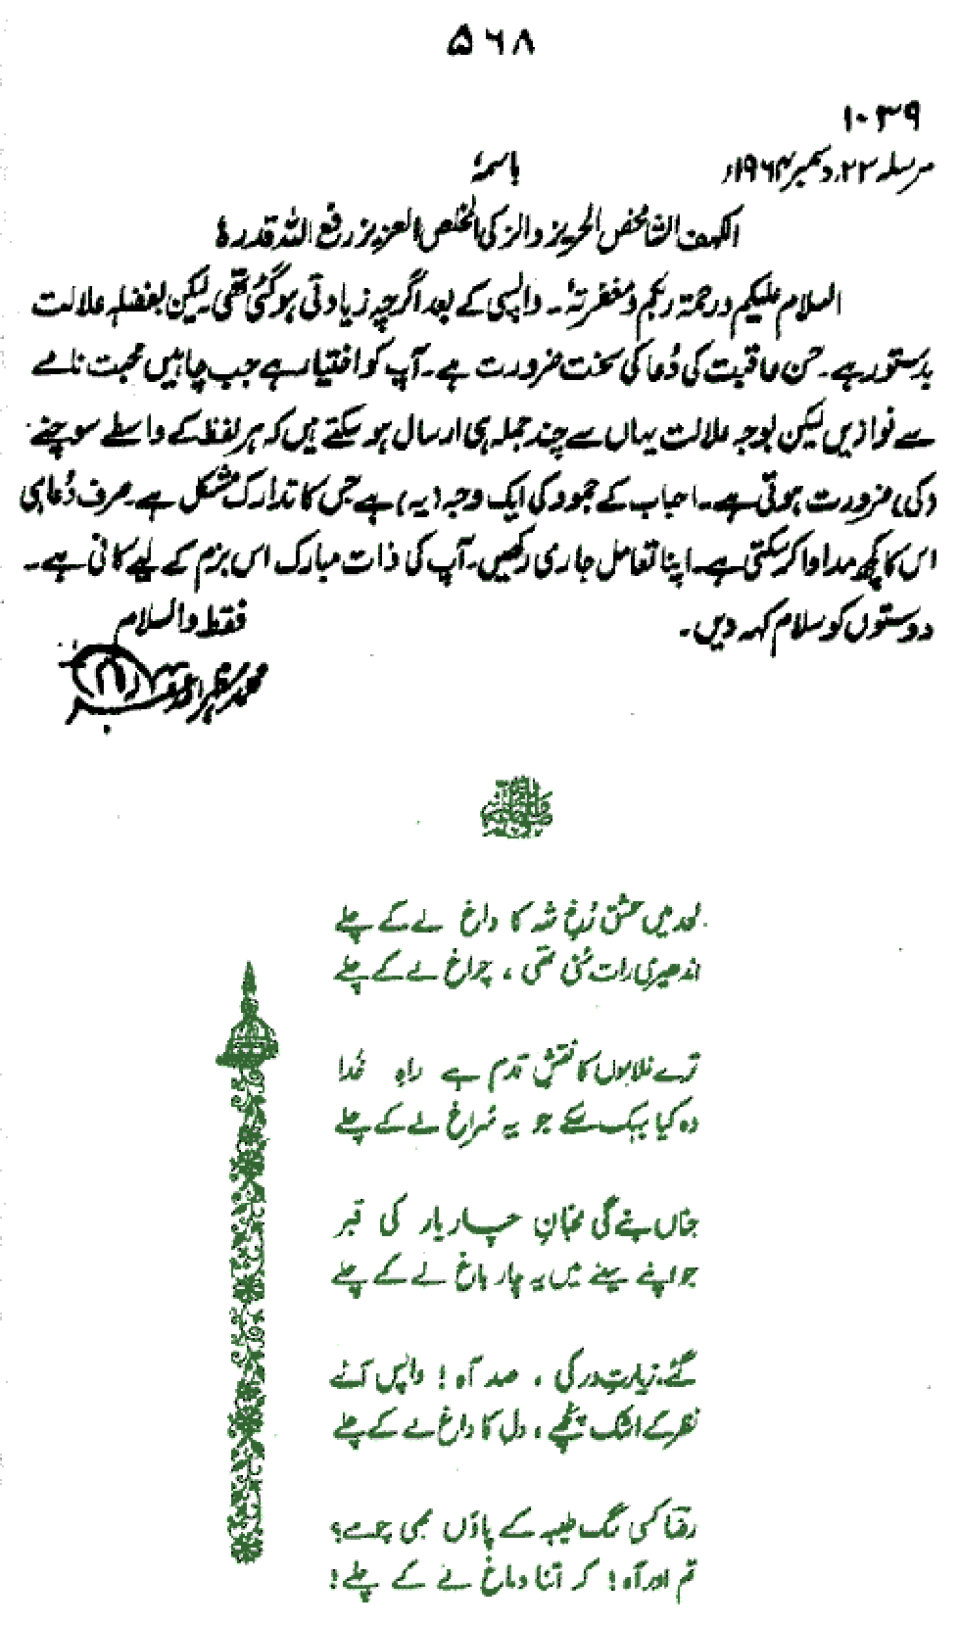 ۵۶۸
۱۰۳۹
مرسلہ ۲۲؍ دسمبر ۱۹۶۴ء
باسمہٗ
الکہف الشامخض الحریز والزکی المخلص العزیز رفع اللہ قدرہٗ
السلام علیکم ورحمۃ ربکم ومغفرتہٗ۔ واپسی کے بعد اگرچہ زیادتی ہوگئی تھی۔ لیکن بفضلہ علالت
بدستور ہے۔ حسن عاقبت کی دُعا کی سخت ضرورت ہے۔ آپ کو اختیار ہے جب چاہیں محبت نامے
سے نوازیں لیکن بوجہ علالت یہاں سے چند جملہ ہی ارسال ہو سکتے ہیں کہ ہر لفظ کے واسطے سوچنے
(کی) ضرورت ہوتی ہے۔ احباب کے جمود کی ایک وجہ (یہ) ہے جس کا تدارک مشکل ہے۔ صرف دُعا ہی
اس کا کچھ مداوا کر سکتی ہے۔ اپنا تعامل جاری رکھیں۔ آپ کی ذات مبارک اس بزم کے لیے کافی ہے۔
دوستوں کو سلام کہہ دیں۔
فقط والسلام
لحد میں عشق رُخِ شہ کا داغ لے کے چلے
اندھیری رات سُنی تھی ، چراغ لے کے چلے
ترے غلاموں کا نقشِ قدم ہے راہِ خُدا
وہ کیا بہک سکے جو یہ سُراغ لے کے چلے
جناں بنے گی محبّانِ چار یار کی قبر
جو اپنے سینے میں یہ چار باغ لے کے چلے
گئے، زیارتِ در کی ، صد آہ ! واپس آئے
نظر کے اشک پُچھے ، دل کا داغ لے کے چلے
رضؔا کسی سگ طیبہ کے پاؤں بھی چومے؟
تم اور آہ ! کہ اتنا دماغ لے کے چلے !